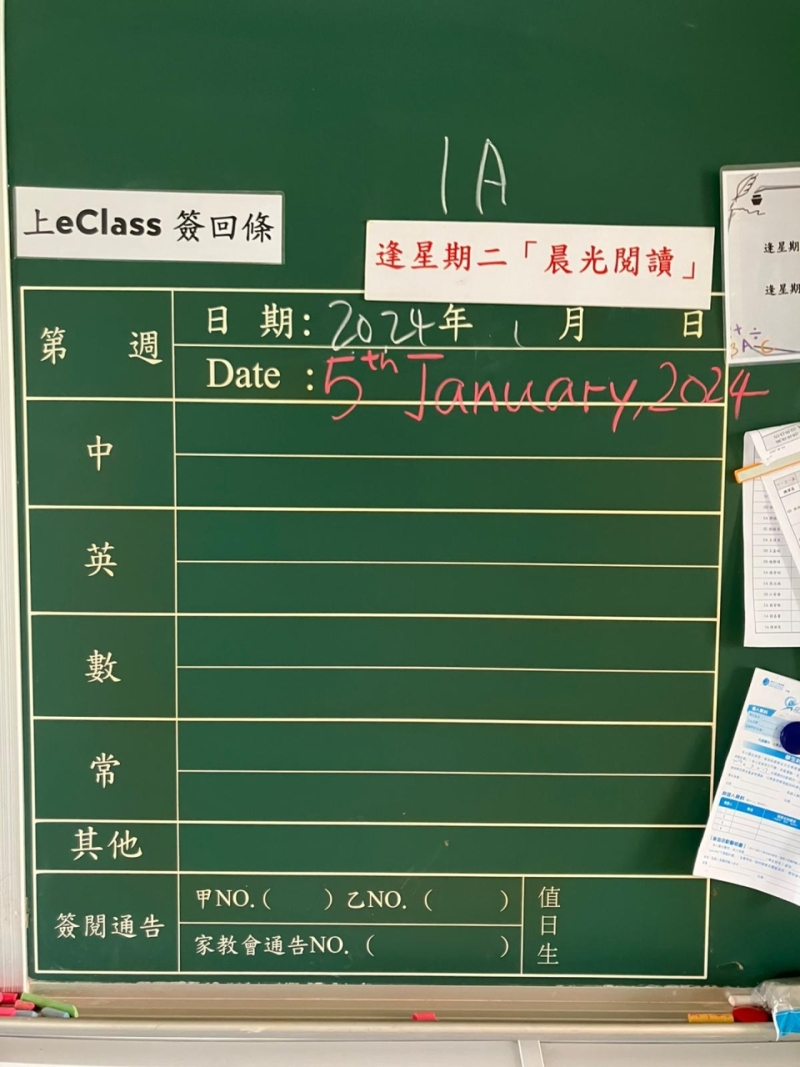 1A
上eClass 簽回條
逢星期二「晨光閱讀」
逢星期
逢星期
第 週
日 期: 2024年 1 月 日
Date : 5th January, 2024
中
英
數
常
其他
簽閱通告
甲NO.( ) 乙NO. ( )
家教會通告NO. ( )
值日生